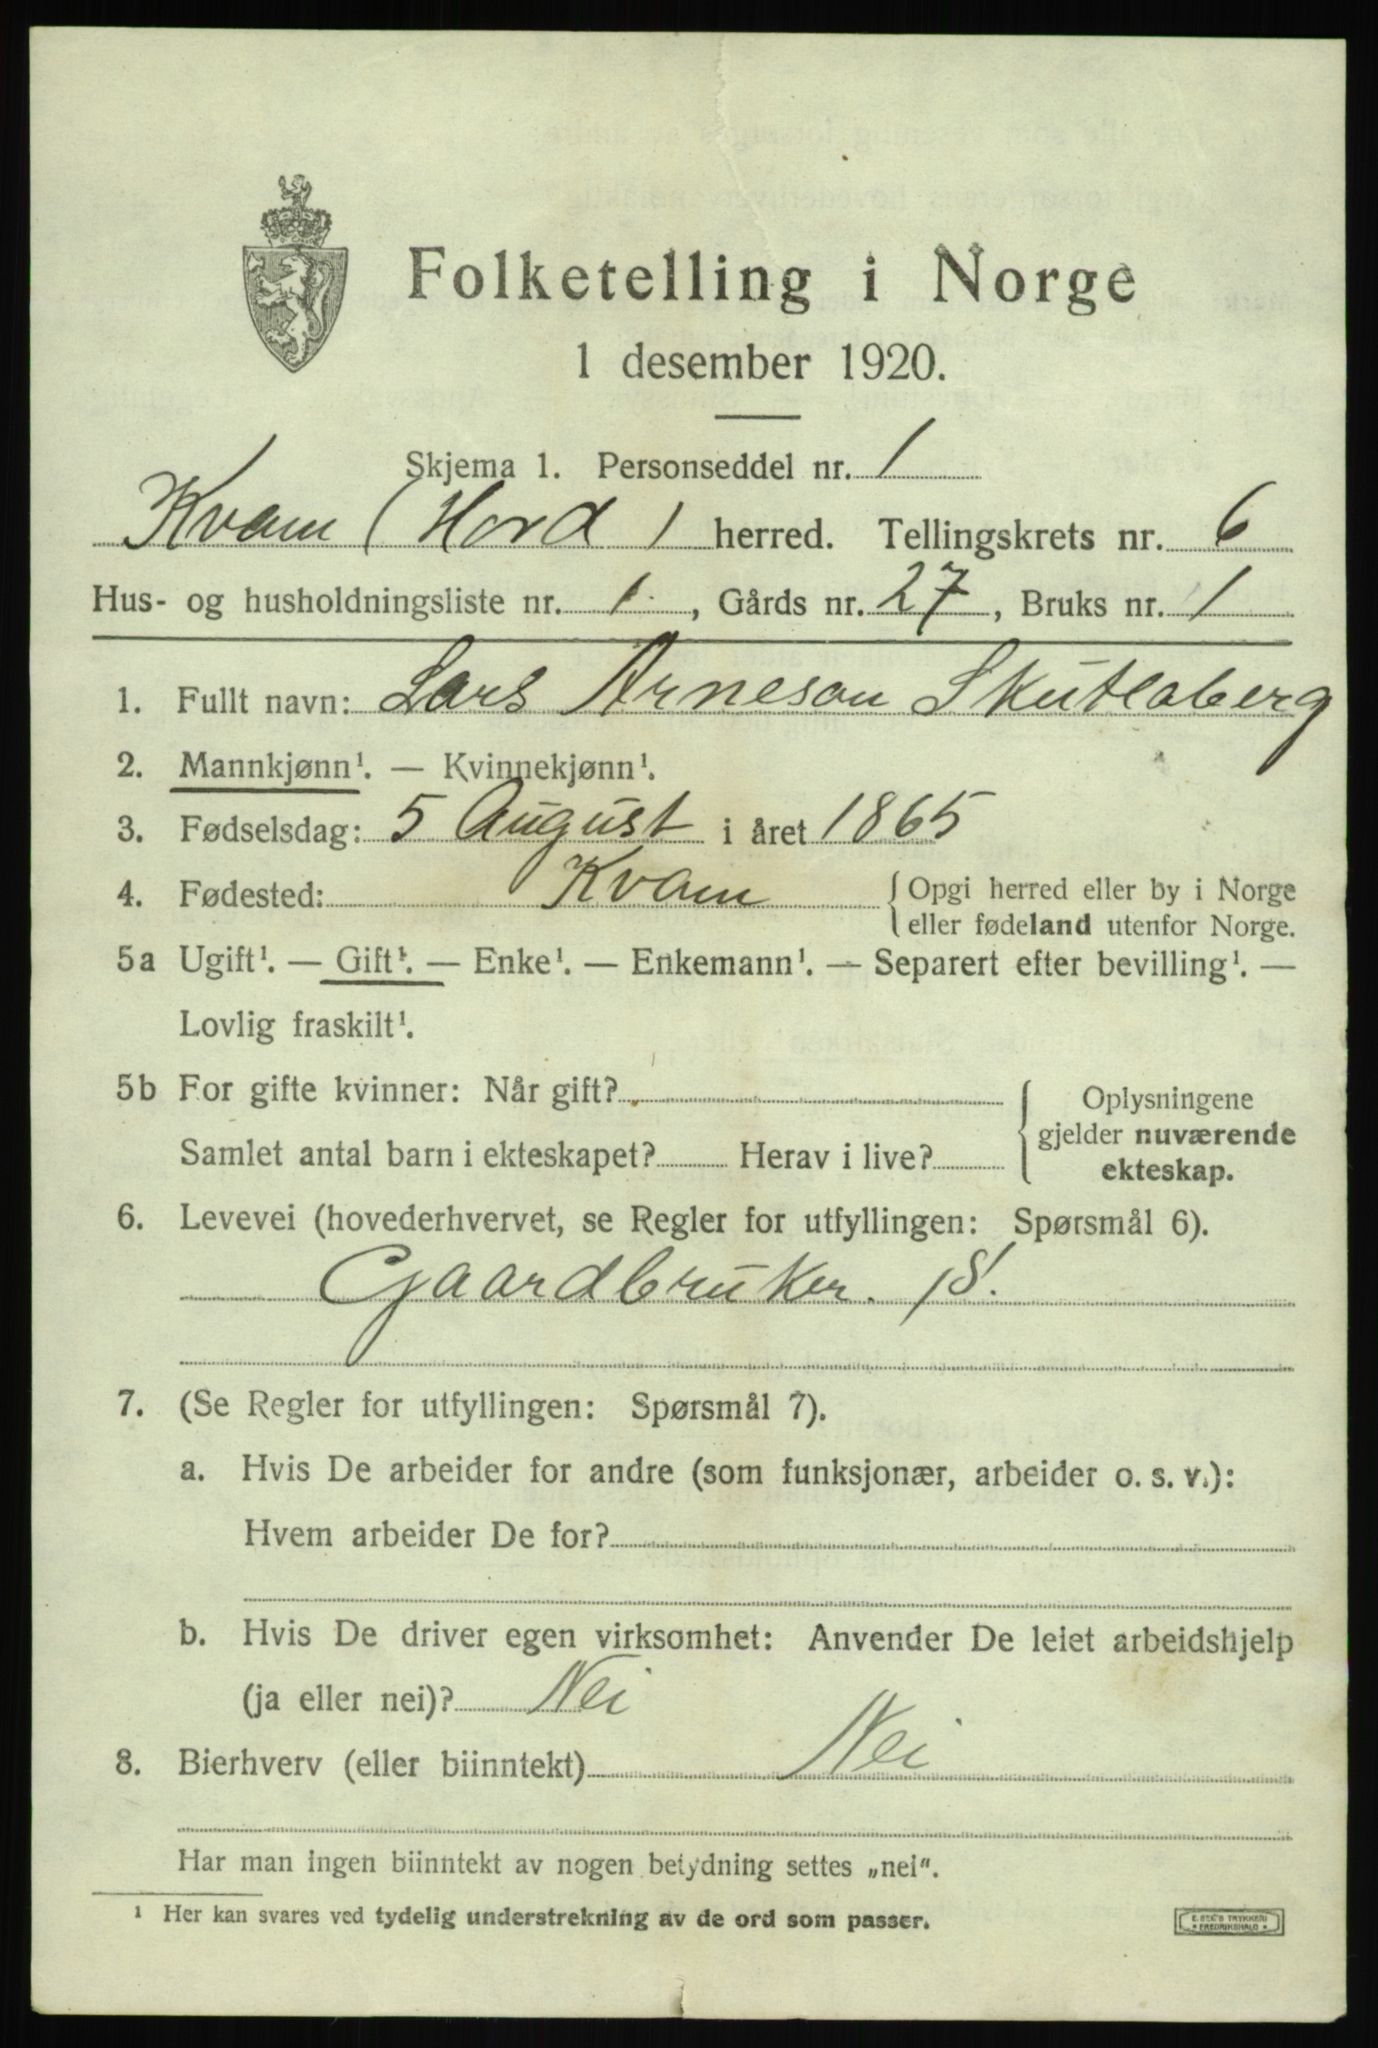 Folketelling i Norge
1 desember 1920.
Skjema 1. Personseddel nr. 1
Kvam (Hord) herred. Tellingskrets nr. 6
Hus- og husholdningsliste nr. 1, Gårds nr. 27, Bruks nr. 1
1. Fullt navn: Lars Arneson Skutlaberg
2. Mannkjønn¹. — Kvinnekjønn¹.
3. Fødselsdag: 5 August i året 1865
4. Fødested: Kvam { Opgi herred eller by i Norge
eller fødeland utenfor Norge.
5a Ugift¹. — Gift¹. — Enke¹. — Enkemann¹. — Separert efter bevilling¹. —
Lovlig fraskilt¹.
5b For gifte kvinner: Når gift?
Samlet antal barn i ekteskapet? Herav i live?
Oplysningene
gjelder nuværende
ekteskap.
6. Levevei (hovederhvervet, se Regler for utfyllingen: Spørsmål 6).
Gaardbruker. S.
7. (Se Regler for utfyllingen: Spørsmål 7).
a. Hvis De arbeider for andre (som funksjonær, arbeider o. s. v.):
Hvem arbeider De for?
b. Hvis De driver egen virksomhet: Anvender De leiet arbeidshjelp
(ja eller nei)? Nei
8. Bierhverv (eller biinntekt) Nei
Har man ingen biinntekt av nogen betydning settes „nei".
¹ Her kan svares ved tydelig understrekning av de ord som passer.
E. SEM'S TRYKKERI
FREDRIKSHALD